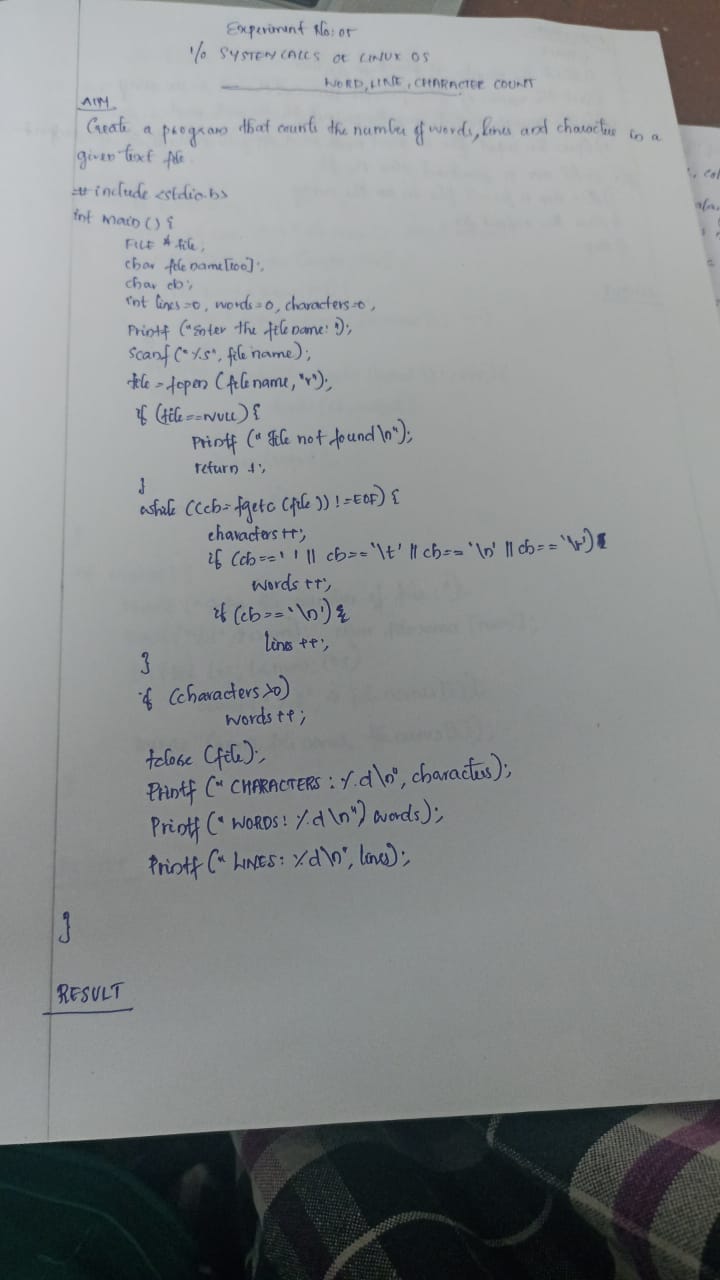 Experiment No: 05
I/O SYSTEM CALLS OF LINUX OS
WORD, LINE, CHARACTER COUNT
AIM
Create a program that counts the number of words, lines and characters in a
given text file
# include <stdio.h>
int main () {
FILE * file;
char file name [100];
char ch;
int lines =0, words =0, characters =0,
Printf ("Enter the file name: ");
Scanf ("%s", file name);
file = fopen (file name, "r");
if (file == NULL) {
Printf (" File not found \n");
return 1;
}
while ((ch= fgetc (file )) != EOF) {
characters ++;
if (ch==' ' || ch=='\t' || ch=='\n' || ch=='\r')
words ++;
if (ch=='\n') {
lines ++;
}
if (characters >0)
words ++;
fclose (file);
Printf (" CHARACTERS : %d \n", characters);
Printf (" WORDS: %d \n") words);
Printf (" LINES: %d \n", lines);
}
RESULT